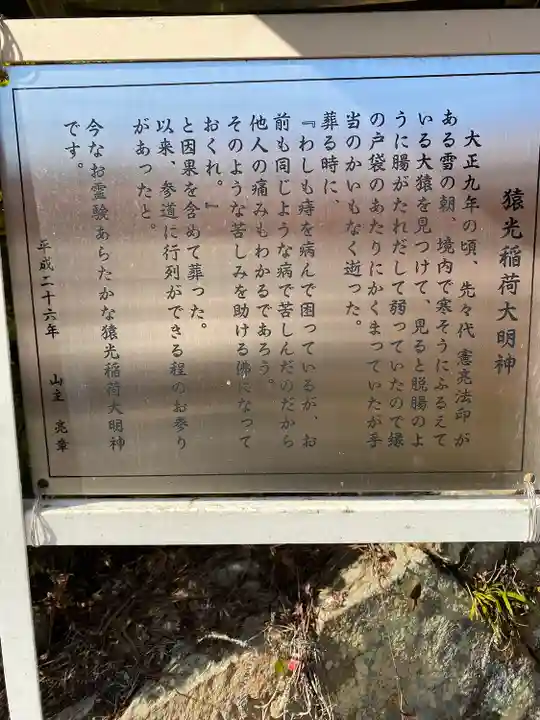 猿光稲荷大明神
大正九年の頃、先々代憲亮法印が
ある雪の朝、境内で寒そうにふるえて
いる大猿を見つけて、見ると脱腸のよ
うに腸がたれだして弱っていたので縁
の戸袋のあたりにかくまっていたが手
当のかいもなく逝った。
葬る時に、
『わしも痔を病んで困っているが、お
前も同じような病で苦しんだのだから
他人の痛みもわかるであろう。
そのような苦しみを助ける佛になって
おくれ。』
と因果を含めて葬った。
以来、参道に行列ができる程のお参り
があったと。
今なお霊験あらたかな猿光稲荷大明神
です。
平成二十六年 山主 亮章